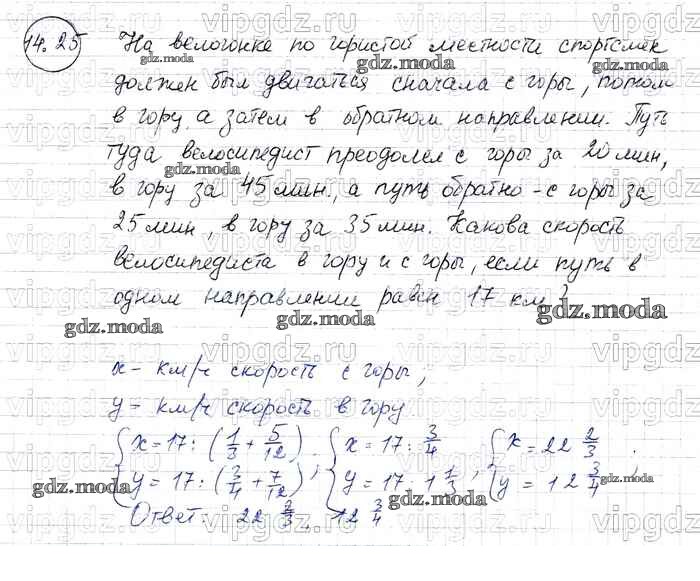 14.25 На велогонке по гористой местности спортсмен
должен был двигаться сначала с горы, потом
в гору, а затем в обратном направлении. Путь
туда велосипедист преодолел с горы за 20 мин,
в гору за 45 мин., а путь обратно - с горы за
25 мин, в гору за 35 мин. Какова скорость
велосипедиста в гору и с горы, если путь в
одном направлении равен 17 км?
x - км/ч скорость с горы;
y = км/ч скорость в гору
{ x = 17 : (1/3 + 5/12) { x = 17 : 3/4 { x = 22 2/3 .
{ y = 17 : (3/4 + 7/12) ; { y = 17 . 1 1/3 ; { y = 12 3/4 ;
Ответ: 22 2/3, 12 3/4
vipgdz.ru
gdz.moda